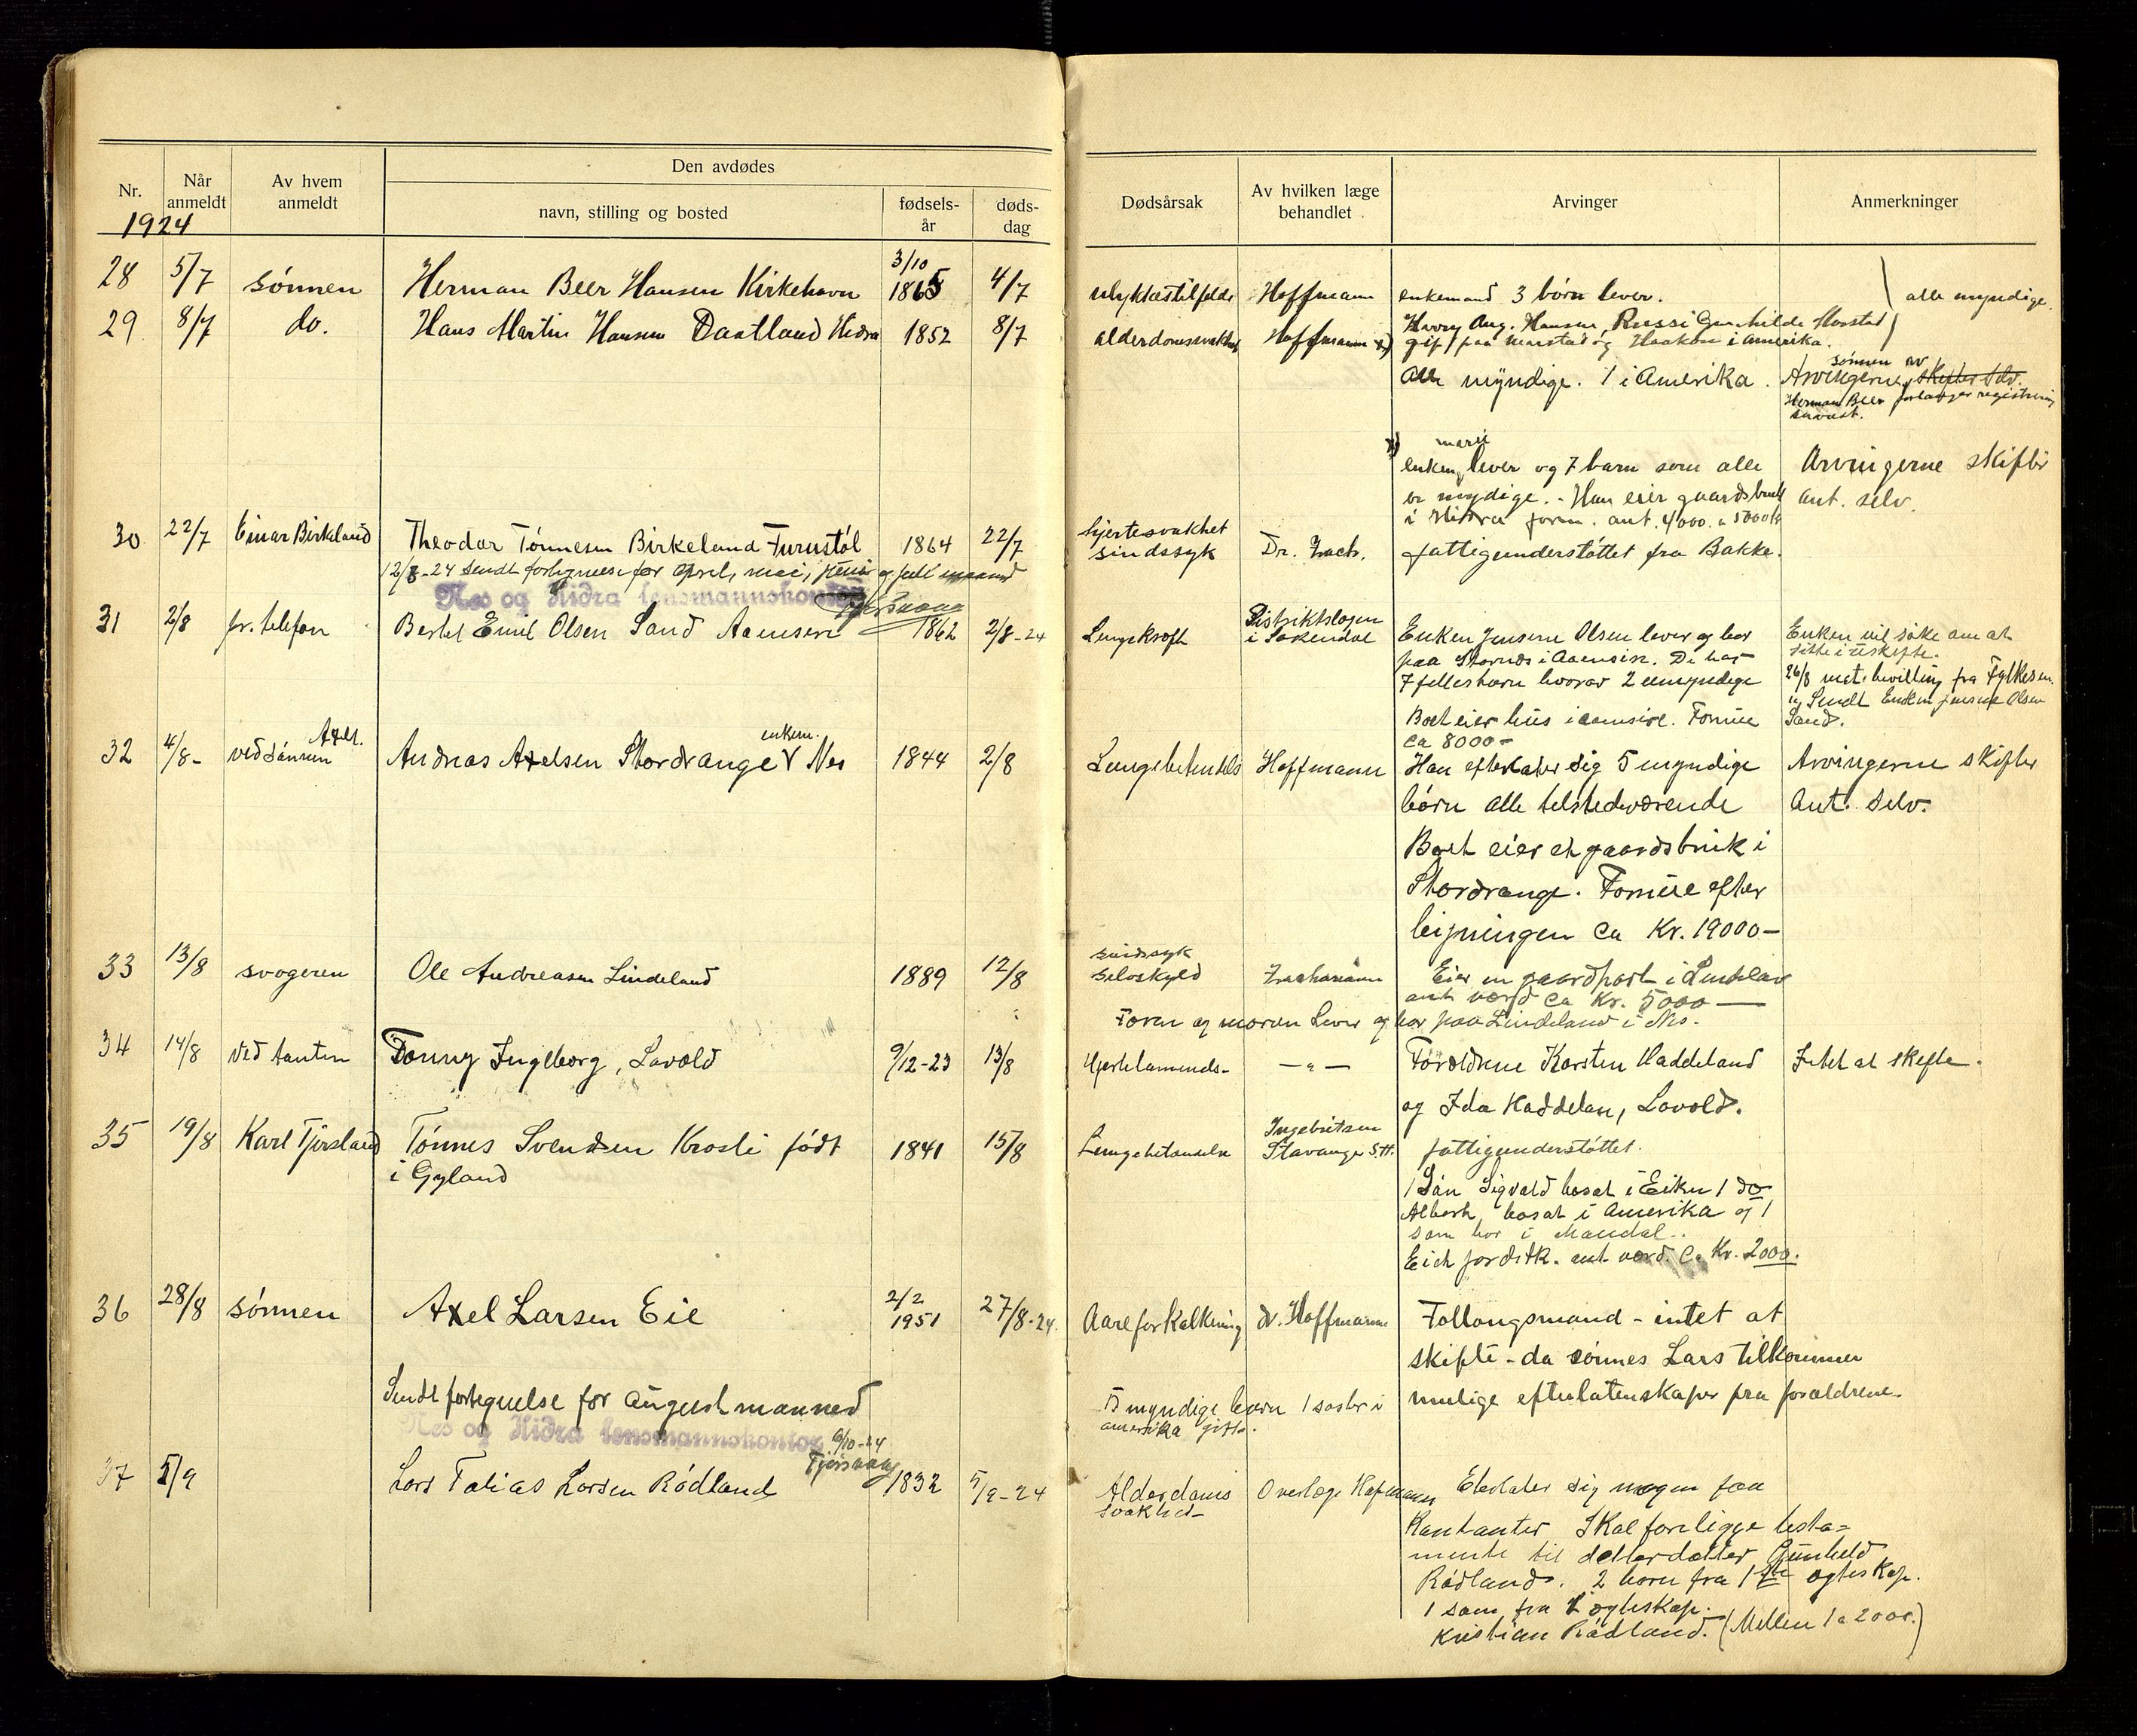 Nr.
Når anmeldt
Av hvem anmeldt
Den avdødes
navn, stilling og bosted
fødsels-år
døds-dag
Dødsårsak
Av hvilken læge behandlet
Arvinger
Anmerkninger
1924
28 5/7 sønnen Herman Beer Hansen Kirkehavn 3/10 1865 4/7 ulykkestilfelde Hoffmann enkemand 3 børn lever. alle myndige.
29 8/7 do. Hans Martin Hansen Daatland Hidra 1852 8/7 alderdomssvakhet Hoffmann x)
Harry Aug. Hansen, Gunhilde
gift paa og Haakon i Amerika.
Alle myndige. 1 i Amerika.
sønnen av
Arvingerne skifter selv.
Herman Beer forlanger registrering
x) marie
enken lever og 7 barn som alle
er mydige. - Han eier gaardsbruk
i Hidra form. ant. 4000 a 5000 kr
Arvingerne skifter
ant. selv.
30 22/7 Einar Birkeland Theodor Tønnesen Birkeland Furustøl 1864 22/7 hjertesvakhet
sindssyk Dr. Zach. fattigunderstøttet fra Bakke.
12/8-24 Sendt fortegnelse for April, mai, juni og juli maaned
Nes og Hidra lensmannskontor
31 2/8 pr. telefon Bertel Emil Olsen Sand Aamsire 1862 2/8-24 Lungekræft Distriktslægen
i Sokendal
Enken Jensine Olsen lever og bor
paa i Aamsire. De har
7 fellesbarn hvorav 2 umyndige
Boet eier hus i aamsire. Formue
ca 8000-
Enken vil søke om at
sitte i uskifte.
26/8 mot. bevilling fra Fylkesm.
og Sendt Enken Jensine Olsen
Sand.
32 4/8- ved sønnen Axel. Andreas Axelsen Stordrange enkem. Nes 1844 2/8 Lungebetendels Hoffmann
Han efterlater sig 5 myndige
børn alle tilstedeværende
Boet eier et gaardsbruk i
Stordrange. Formue efter
ligningen ca Kr. 19000-
Arvingerne skifter
ant. selv.
33 13/8 svogeren Ole Andreasen Lindeland 1889 12/8 sindssyk
Zachariassen
Eier en gaardpart i Lindeland
ant værd ca Kr. 5000 —
Faren og moren lever og bor paa Lindeland i Nes.
34 14/8 Ved tanten Fanny Ingeborg, Lavold 9/12-23 13/8 Hjertelammels- — " —
Forældrene Karsten Haddeland
og Ida Haddelan, Lavold.
Intet at skifte.
35 19/8 Karl Tjørsland Tønnes Svendsen Krosli født
i Gyland 1841 15/8 Lungebetændelse Ingebritsen
Stavanger S.H.
fattigunderstøttet.
1 Søn Sigvald bosat i Eiken 1 do
Albert, bosat i Amerika og 1
som bor i Mandal..
Eich fordstk. ant værd. Ca Kr. 2000.
36 28/8 sønnen Axel Larsen Eie 2/2 1951 27/8-24. Aareforkalkning dr. Hoffmann
Follougsmand - intet at
skifte - da sønnes Lars tilkommer
mulige efterlatenskaper fra forældrene.
5 myndige barn 1 søster i
amerika gift.
Sendt fortegnelse for august maaned
Nes og Hidra lensmannskontor 6/10-24
37 5/9 Lars Tobias Larsen Rødland 1832 5/9-24 Alderdoms
svakhet- Overlæge Hofmann
Efterlater sig nogen faa
Kontanter Skal foreligge testa=
mente til datterdatter Gunhild
Rødland. 2 barn fra 1ste egteskap.
1 søn fra 2 egteskap.
Kristian Rødland. (Mellem 1 a 2000.)